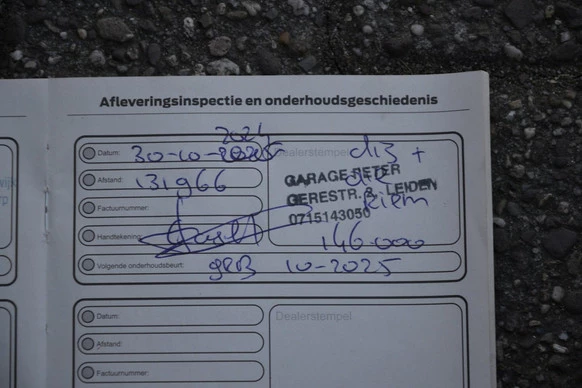 Afleveringsinspectie en onderhoudsgeschiedenis
2024
Datum: 30-10-2025
Dealerstempel
Afstand: 131966
GARAGE PETER
GERESTR. 2 LEIDEN
0715143050
diz +
riem
146.000
Factuurnummer:
Handtekening:
Volgende onderhoudsbeurt: 10-2025
Datum:
Dealerstempel
Afstand:
Factuurnummer: